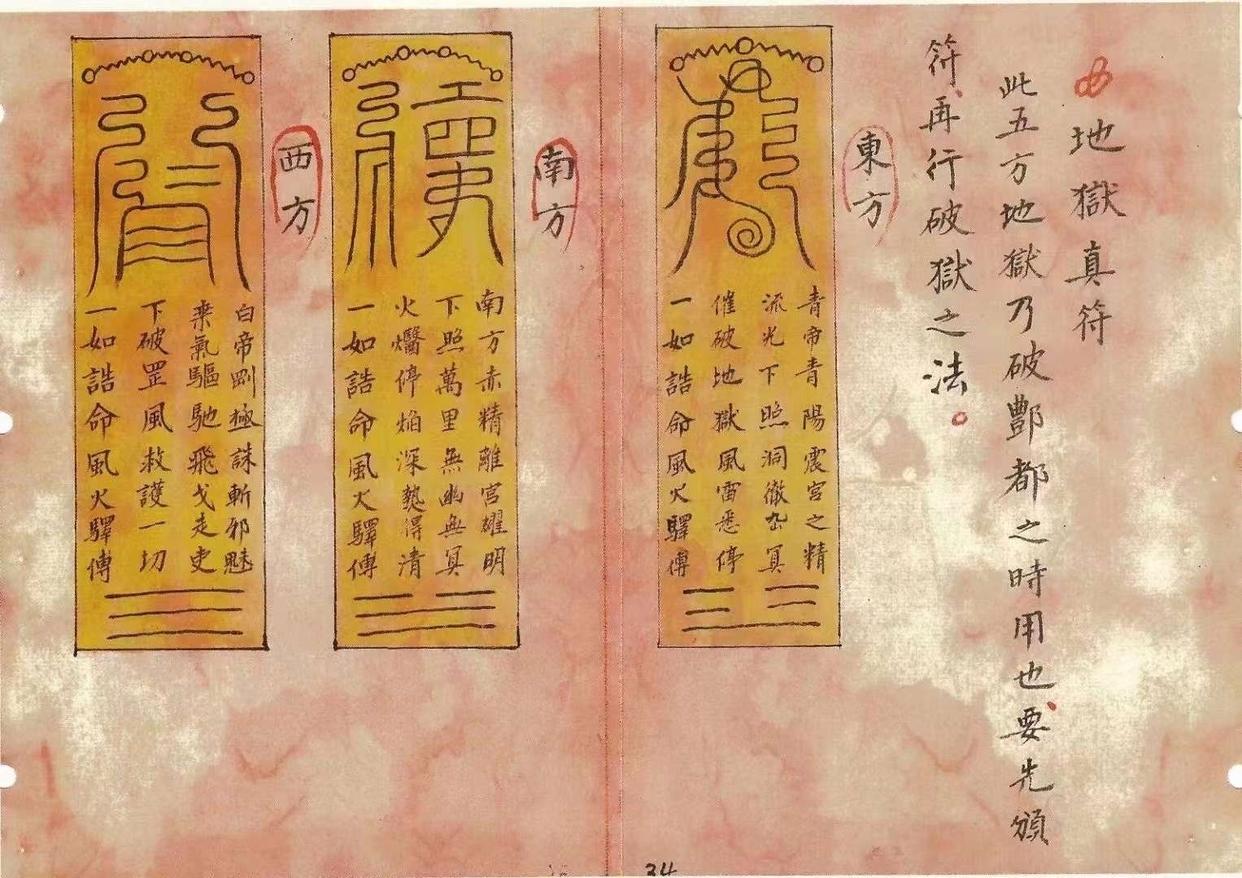 地獄真符
此五方地獄乃破酆都之時用也要先頒
符再行破獄之法。
東方
青帝青陽震宮之精
流光下照洞徹冥
催破地獄風雷悉停
一如誥命風火驛傳
南方
南方赤精離宮耀明
下照萬里無幽無冥
火停焰深得清
一如誥命風火驛傳
西方
白帝剛極誅斬邪魅
乘氣驅馳飛戈走吏
下破罡風救護一切
一如誥命風火驛傳
34